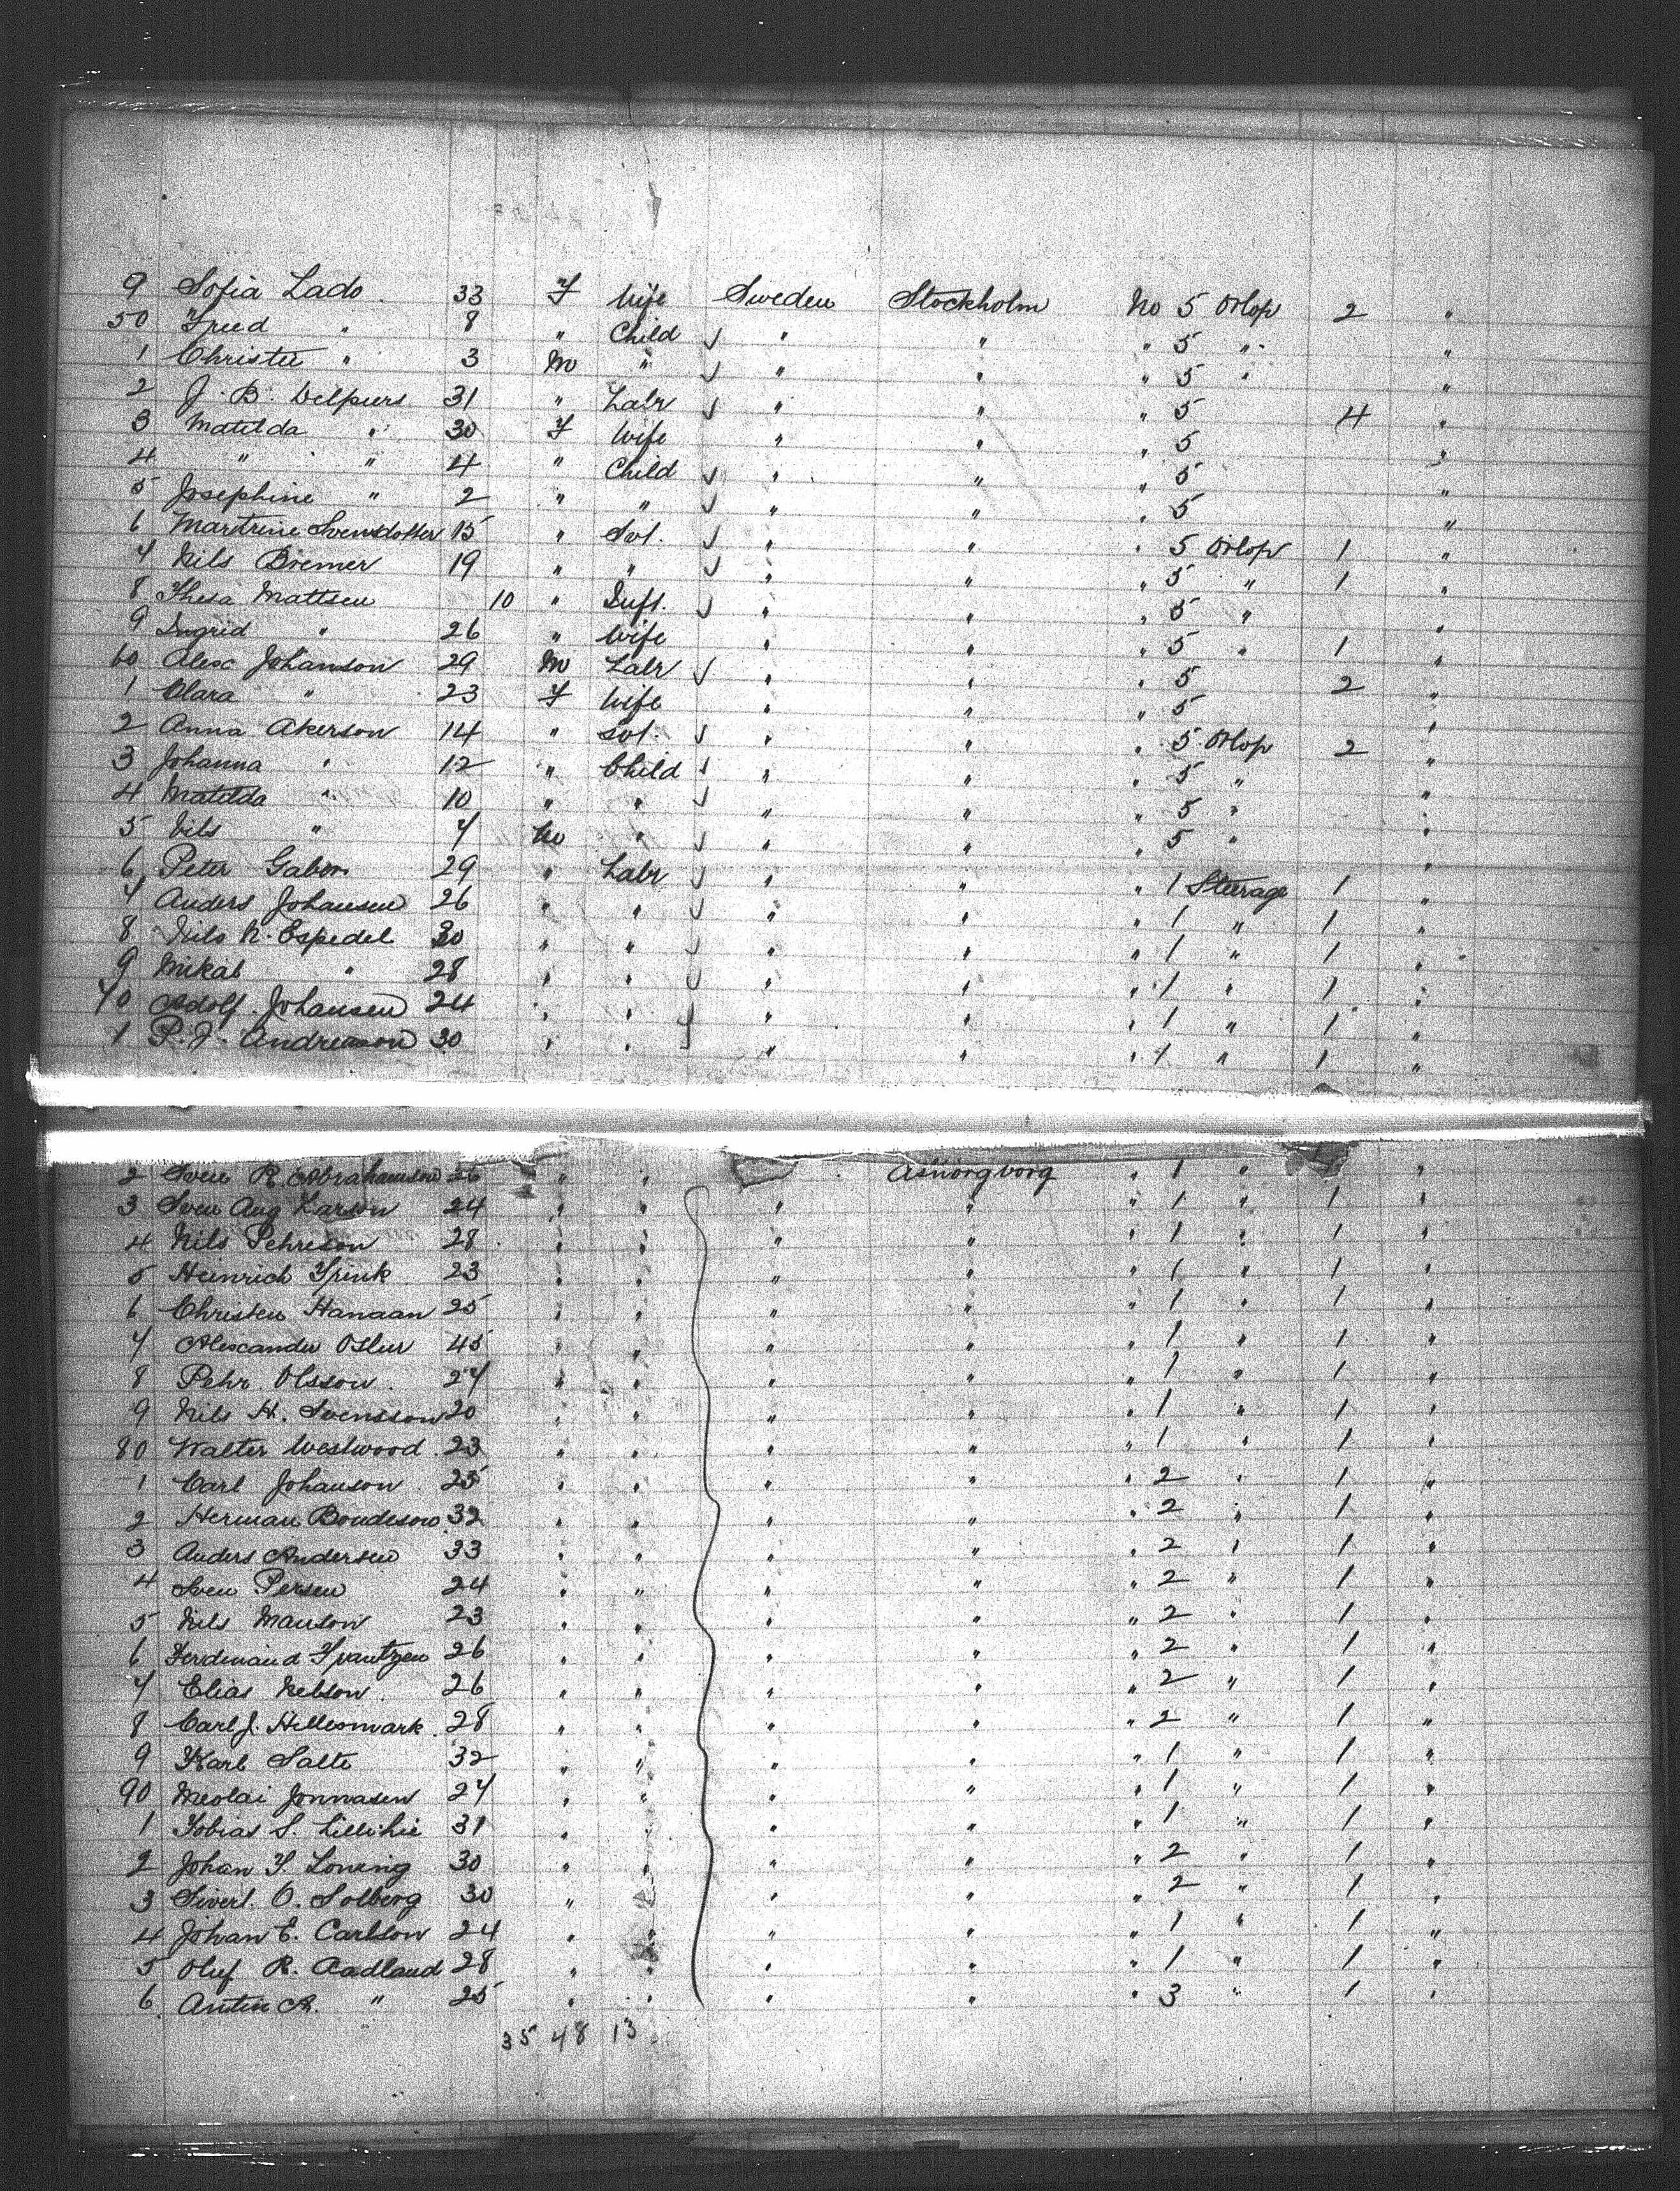 9 Sofia Lado 33 F Wife Sweden Stockholm No 5 Orlop 2 "
50 Fried " 8 " Child " " " 5 " "
1 Christu " 3 M " " " " 5 " "
2 J. B. 31 " Labr " " " 5 4 "
3 Matilda " 30 F Wife " " " 5 "
4 " " 4 " Child " " " 5 "
5 Josephine " 2 " " " " " 5 "
6 Martrine Svensdotter 15 " Svt. " " " 5 Orlop 1 "
7 Nils Bremer 19 " " " " " 5 " 1 "
8 Thesa Mattsen 10 " Inft. " " " 5 " "
9 Ingrid " 26 " Wife " " " 5 " 1 "
60 Alex Johanson 29 M Labr " " " 5 2 "
1 Clara " 23 F Wife " " " 5 "
2 Anna Akerson 14 " Svt. " " " 5 Orlop 2 "
3 Johanna " 12 " Child " " " 5 " "
4 Matilda " 10 " " " " " 5 " "
5 Nils " 7 M " " " " 5 " "
6 Peter Gabon 29 " Labr " " " 1 Steerage 1 "
7 Anders Johansen 26 " " " " " 1 " 1 "
8 Nils N. Espedel 30 " " " " " 1 " 1 "
9 Mikal " 28 " " " " " 1 " 1 "
70 Adolf Johansen 24 " " " " " 1 " 1 "
1 P. J. Andreason 30 " " " " " 1 " 1 "
2 Sven R. Abrahamson 26 " " " 1 " "
3 Sven Aug Larson 24 " " " " " 1 " 1 "
4 Nils Pehreson 28 " " " " " 1 " 1 "
5 Heinrich Frink 23 " " " " " 1 " 1 "
6 Christen Hanaan 25 " " " " " 1 " 1 "
7 Alexander 45 " " " " " 1 " 1 "
8 Pehr Olsson 27 " " " " " 1 " 1 "
9 Nils H. Svensson 20 " " " " " 1 " 1 "
80 Walter Westwood 23 " " " " " 1 " 1 "
1 Carl Johanson 25 " " " " " 2 " 1 "
2 Herman Bondeson 32 " " " " " 2 " 1 "
3 Anders Andersen 33 " " " " " 2 " 1 "
4 Sven Persen 24 " " " " " 2 " 1 "
5 Nils Manson 23 " " " " " 2 " 1 "
6 Ferdinand Frantzen 26 " " " " " 2 " 1 "
7 Elias Nelson 26 " " " " " 2 " 1 "
8 Carl J. Hellesmark 28 " " " " " 2 " 1 "
9 Karl Salte 32 " " " " " 1 " 1 "
90 Nicolai Jonnasen 27 " " " " " 1 " 1 "
1 Tobias S. 31 " " " " " 1 " 1 "
2 Johan F. Loning 30 " " " " " 2 " 1 "
3 Sivert O. Solberg 30 " " " " " 2 " 1 "
4 Johan E. Carlson 24 " " " " " 1 " 1 "
5 Oluf R. Aadland 28 " " " " " 1 " 1 "
6 Antin A. " 25 " " " " " 3 " 1 "
35 48 13